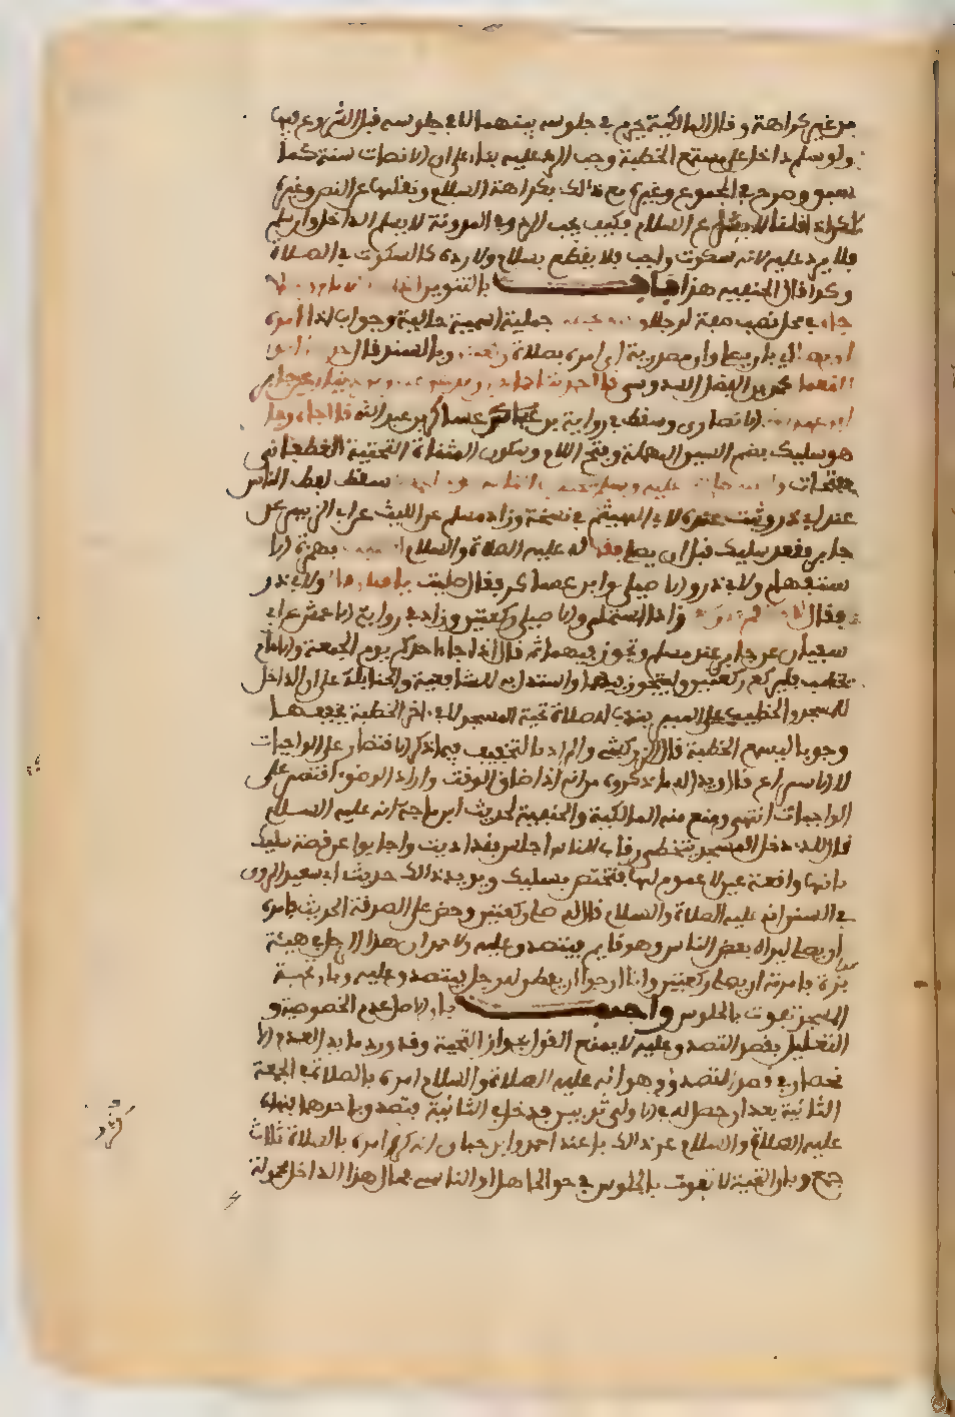 من غير كراهة وقال المالكية يحرم في جلوسه بينهما لا في جلوسه قبل الشروع فيها
ولو سلم داخل على مستمع الخطبة وجب الرد عليه بناء على ان الانصات سنة كما
سبق وصرح في المجموع وغيره مع ذلك بكراهة السلام ونقلها عن النص وغيره
لكن اذا قلنا لا يشرع السلام فكيف يجب الرد وفي المدونة لا يسلم الداخل وان سلم
فلا يرد عليه لانه سكوت واجب فلا يقطع بسلام ولا رده كالسكوت في الصلاة
وكذا قال الحنفية هذا باب بالتنوين اذا
جاء في محل نصب صفة لرجلا جملية اسمية حالية وجواب اذا امره
ان يصلي اي بان يصلي وان مصدرية اي امره بصلاة وبالسند قال
النعمان محمد بن الفضل السدوسي قال حدثنا حماد بن زيد عن عمرو بن دينار عن جابر
ابن عبد الله الانصاري وسقط في رواية بن عساكر بن عبد الله قال جاء رجل
هو سليك بضم السين المهملة وفتح اللام وسكون المثناة التحتية الغطفاني
بفتحات والنبي صلى الله عليه وسلم يخطب الناس يوم الجمعة سقط لفظ الناس
عند ابي ذر وثبت عنده لابي الهيثم في نسخة وزاد مسلم عن الليث عن ابي الزبير عن
جابر فقعد سليك قبل ان يصلي فقال له عليه الصلاة والسلام اصليت بهمزة الا
ستفهام ولابي ذر والاصيلي وابن عساكر فقال صليت يا فلان قال ولابي ذر
فقال لا قال قم فاركع زاد المستملي والاصيلي ركعتين وزاد في رواية الاعمش عن ابي
سفيان عن جابر عند مسلم وتجوز فيهما ثم قال اذا جاء احدكم يوم الجمعة والامام
يخطب فليركع ركعتين وليتجوز فيهما واستدل به الشافعية والحنابلة على ان الداخل
للمسجد والخطيب على المنبر يندب له صلاة تحية المسجد لا في اخر الخطبة يخففها
وجوبا ليسمع الخطبة قال الزركشي والمراد بالتخفيف فيما ذكر الاقتصار على الواجبات
لا الاسراع قال ويدل له ما ذكروه من انه اذا ضاق الوقت واراد الوضوء اقتصر على
الواجبات انتهى ومنع منه المالكية والحنفية لحديث ابن ماجة انه عليه السلام
قال للذي دخل المسجد يتخطى رقاب الناس اجلس فقد اذيت واجابوا عن قصة سليك
بانها واقعة عين لا عموم لها فتختص بسليك ويؤيد ذلك حديث ابي سعيد المروي
في السنن انه عليه الصلاة والسلام قال له صل ركعتين وحض على الصدقة الحديث فامره
ان يصلي ليراه بعض الناس وهو قائم فيتصدق عليه ولاحمد ان هذا الرجل في هيئة
بذة فامرته ان يصلي ركعتين وانا ارجو ان يفطن له رجل فيتصدق عليه وبان تحية
المسجد تفوت بالجلوس واجيب بان الاصل عدم الخصوصية و
التعليل بقصد التصدق عليه لا يمنع القول بجواز التحية وقد ورد ما يدل لعدم الا
نحصار في قصد التصدق وهو انه عليه الصلاة والسلام امره بالصلاة في الجمعة
الثانية بعد ان حصل له في الاولى ثوبين فدخل في الثانية فتصدق باحدهما فنهاه
عليه الصلاة والسلام عن ذلك بل عند احمد وابن حبان انه كرر امره بالصلاة ثلاث
جمع وبان التحية لا تفوت بالجلوس في حق الجاهل او الناسي فحال هذا الداخل محمولة